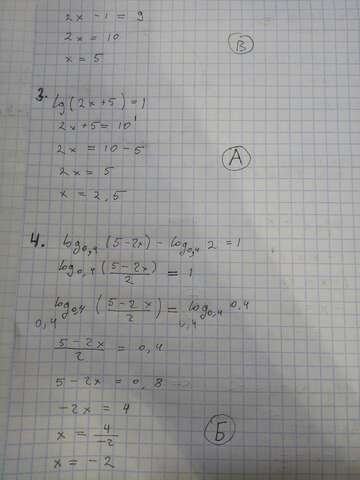 2x - 1 = 9
2x = 10
x = 5
В
3.
lg(2x+5) = 1
2x+5 = 10¹
2x = 10-5
2x = 5
x = 2,5
А
4. log₀,₄(5-2x) - log₀,₄ 2 = 1
log₀,₄(5-2x/2) = 1
log₀,₄(5-2x/2) = log₀,₄ 0,4
0,4 0,4
5-2x/2 = 0,4
5-2x = 0,8
-2x = 4
x = 4/-2
x = -2
Б